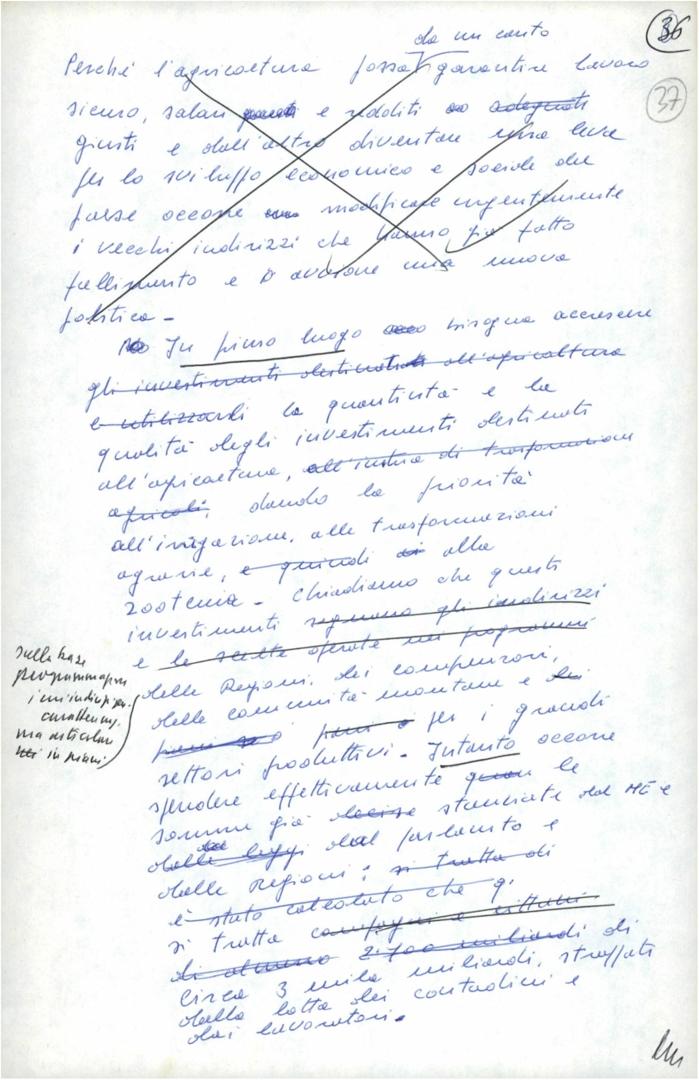 36
37
da un canto
Perché l'agricoltura possa garantire lavoro
sicuro, salari e redditi adeguati
giusti e dall'altro diventare una leva
per lo sviluppo economico e sociale del
paese occorre modificare urgentemente
i vecchi indirizzi che hanno già fatto
fallimento e una nuova
politica -
In primo luogo bisogna accrescere
gli investimenti destinati all'agricoltura
e utilizzarli la quantità e la
qualità degli investimenti destinati
all'agricoltura, di trasformazione
agricoli, dando la priorità
all'irrigazione, alle trasformazioni
agrarie, e quindi alla
zootecnia - Chiediamo che questi
investimenti seguano gli indirizzi
e le scelte operate nei programmi
sulla base
ma articolati
in piani
delle Regioni, dei comprensori,
delle comunità montane e dei
per i grandi
settori produttivi - Intanto occorre
spendere effettivamente le
somme già decise stanziate dal MEC
dalle leggi dal parlamento e
dalle Regioni: si tratta di
è stato calcolato che
si tratta
di almeno 2.700 miliardi di
circa 3 mila miliardi, strappati
dalla lotta dei contadini e
dai lavoratori.